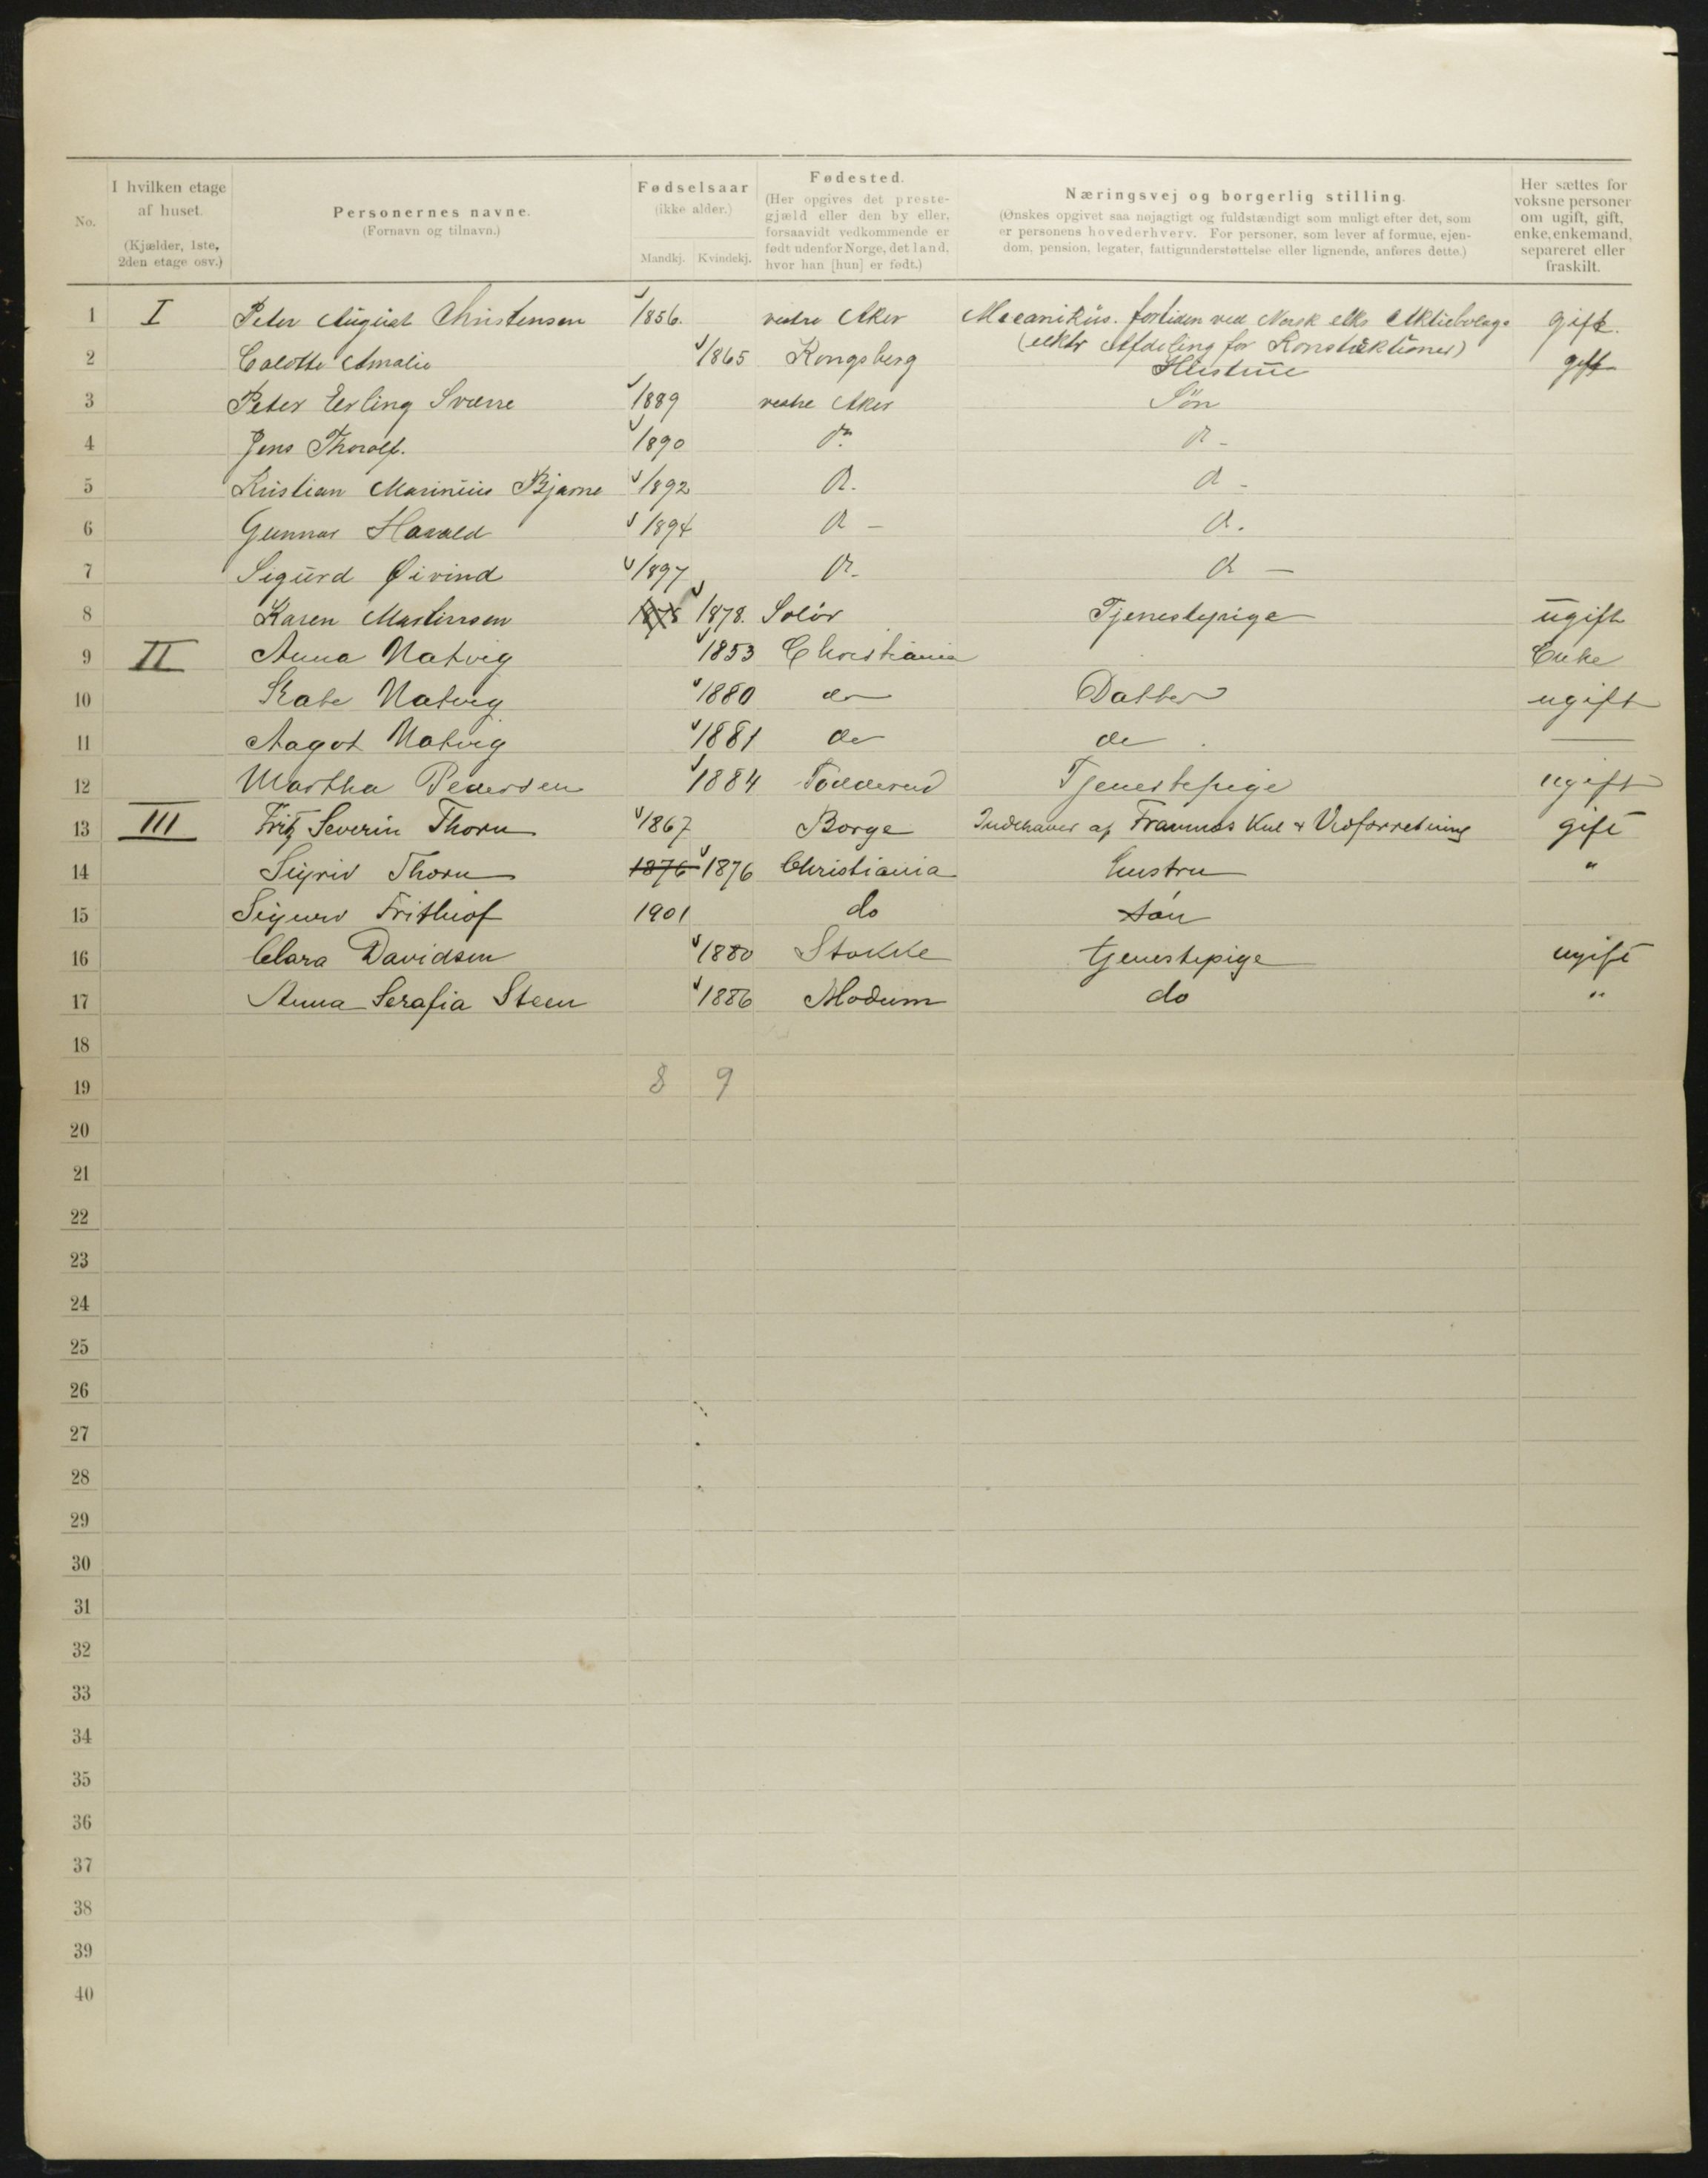 No. I hvilken etage af huset. (Kjælder, 1ste, 2den etage osv.) Personernes navne. (Fornavn og tilnavn.) Fødselsaar (ikke alder.) Mandkj. Kvindekj. Fødested. (Her opgives det prestegjæld eller den by eller, forsaavidt vedkommende er født udenfor Norge, det land, hvor han [hun] er født.) Næringsvej og borgerlig stilling. (Ønskes opgivet saa nøjagtigt og fuldstændigt som muligt efter det, som er personens hovederhverv. For personer, som lever af formue, ejendom, pension, legater, fattigunderstøttelse eller lignende, anføres dette.) Her sættes for voksne personer om ugift, gift, enke, enkemand, separeret eller fraskilt.
1 I Peter August Christensen 1856. vestre Aker Mecanikus. fortiden ved Norsk elks Aktiebolag gift.
(elktr Afdeling for Konstruktioner)
2 Calotte Amalie 1865 Kongsberg Hustrue gift
3 Peter Erling Sværre 1889 vestre Aker Søn
4 Jens Thorolf. 1890 do d -
5 Kristian Marinius Bjarne 1892 d. d -
6 Gunnar Harald 1894 d - d.
7 Sigurd Øivind 1897 d. d -
8 Karen Martinsen 1878 1878. Solör Tjenestepige ugift
9 II Anna Natvig 1853 Christiania Enke
10 Kate Natvig 1880 do Datter ugift
11 Aagot Natvig 1881 do do —
12 Martha Pedersen 1884 Tjenestepige ugift
13 III Fritz Severin Thorn 1867 Borge Indehaver af Framnæs Kul & Vedforretning gift
14 Sigrid Thorn 1876 1876 Christiania hustru "
15 Sigurd Frithiof 1901 do søn
16 Clara Davidsen 1880 Stokke tjenestepige ugift
17 Anna Serafia Steen 1886 Modum do "
18
19 8 9
20
21
22
23
24
25
26
27
28
29
30
31
32
33
34
35
36
37
38
39
40